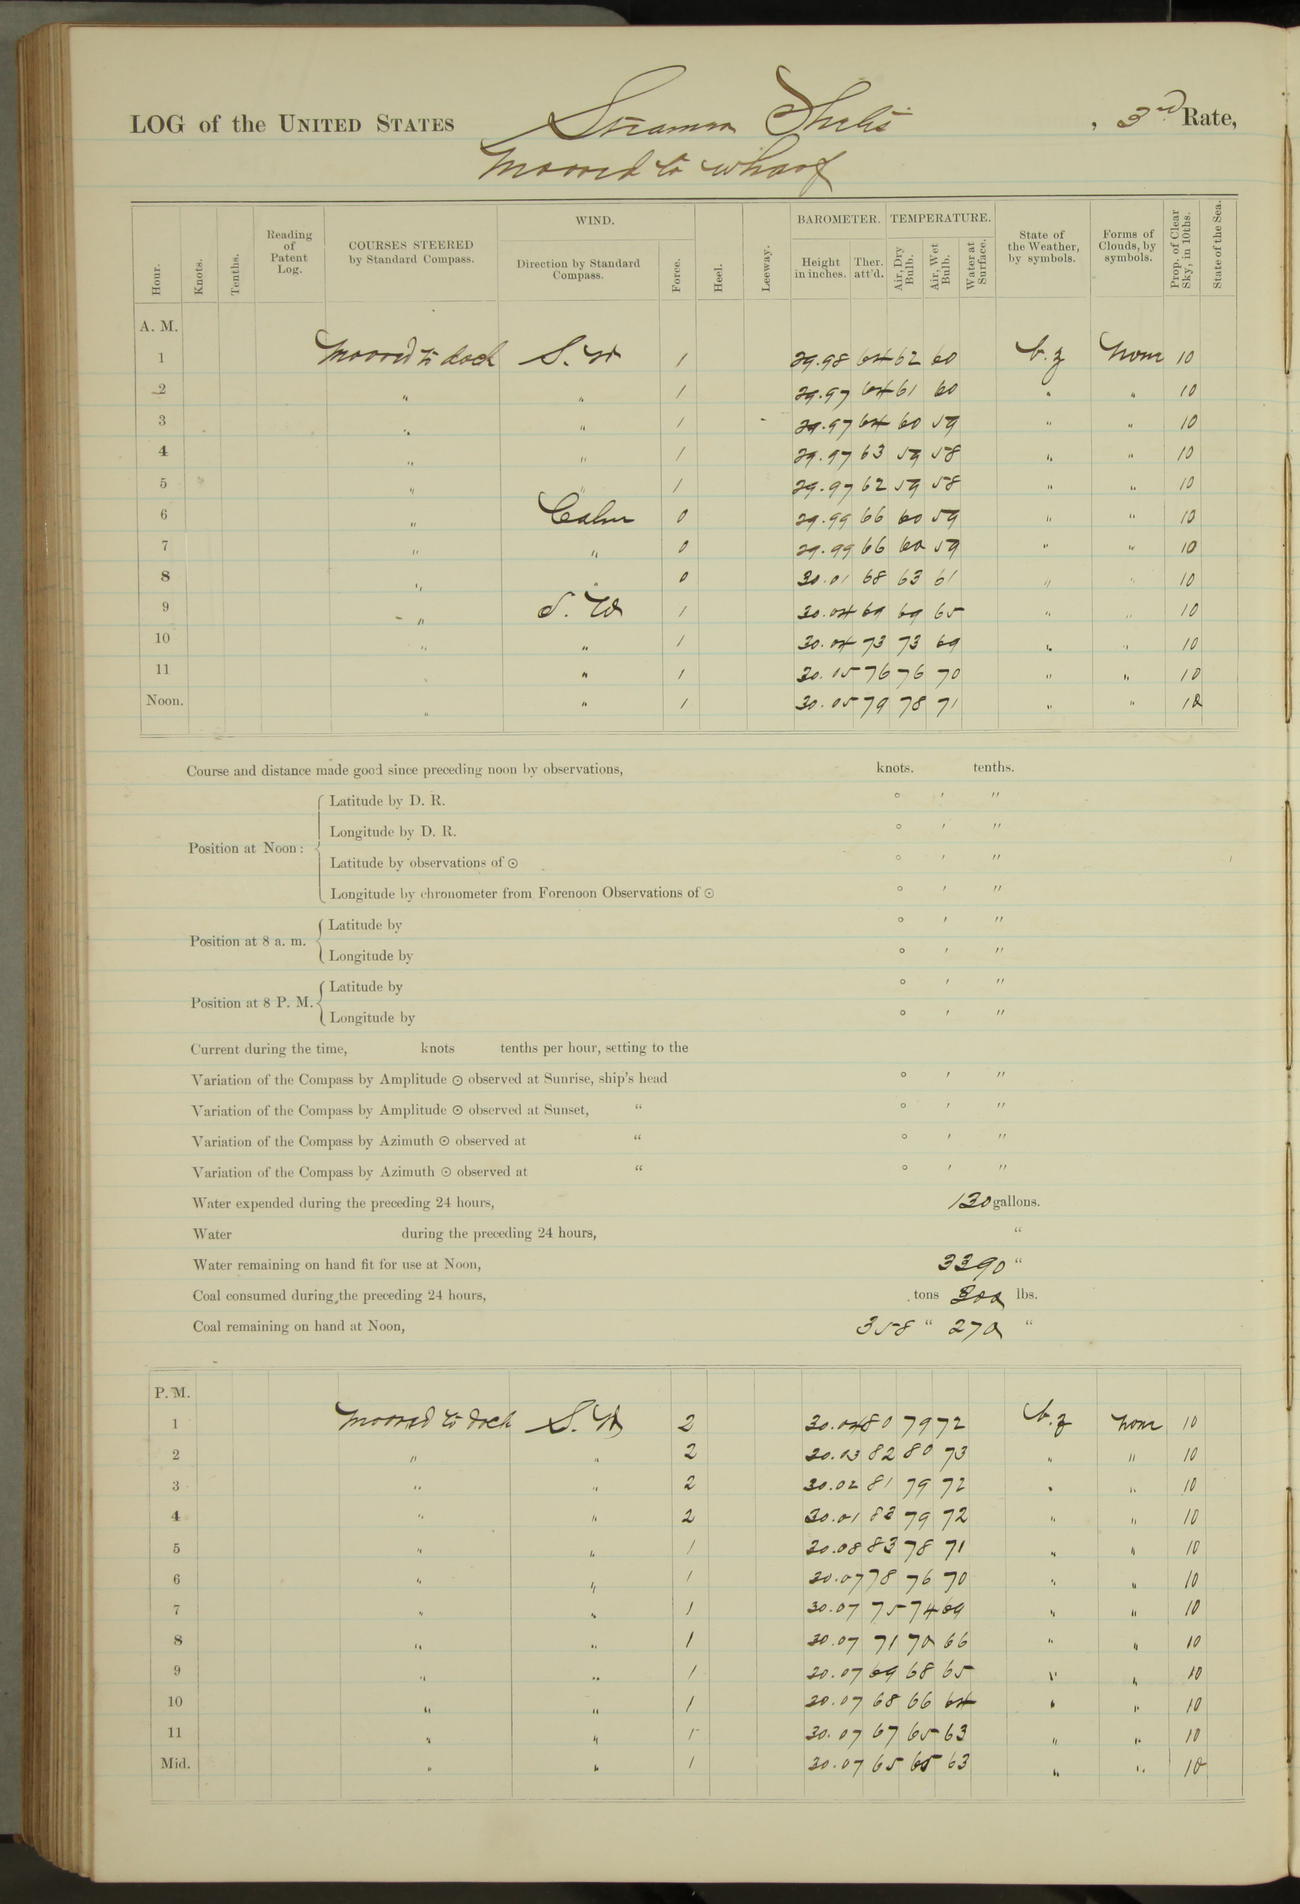 LOG of the UNITED STATES Steamer Thetis , 3rd Rate,
Moored to wharf
Hour. Knots. Tenths. Reading of Patent Log. COURSES STEERED by Standard Compass. WIND. Direction by Standard Compass. Force. Heel. Leeway. BAROMETER. Height in inches. Ther. att'd. TEMPERATURE. Air, Dry Bulb. Air, Wet Bulb. Water at Surface. State of the Weather, by symbols. Forms of Clouds, by symbols. Prop. of Clear Sky, in 10ths. State of the Sea.
A. M.
1 Moored to dock S. W 1 29.98 64 62 60 b.z None 10
2 " " 1 29.97 64 61 60 " " 10
3 " " 1 29.97 64 60 59 " " 10
4 " " 1 29.97 63 59 58 " " 10
5 " " 1 29.97 62 59 58 " " 10
6 " Calm 0 29.99 66 60 59 " " 10
7 " " 0 29.99 66 60 59 " " 10
8 " " 0 30.01 68 63 61 " " 10
9 " S. W 1 30.04 69 69 65 " " 10
10 " " 1 30.04 73 73 69 " " 10
11 " " 1 30.05 76 76 70 " " 10
Noon. " " 1 30.05 79 78 71 " " 10
Course and distance made good since preceding noon by observations, knots. tenths.
Position at Noon:
Latitude by D. R. ° ′ ″
Longitude by D. R. ° ′ ″
Latitude by observations of ⊙ ° ′ ″
Longitude by chronometer from Forenoon Observations of ⊙ ° ′ ″
Position at 8 a. m.
Latitude by ° ′ ″
Longitude by ° ′ ″
Position at 8 P. M.
Latitude by ° ′ ″
Longitude by ° ′ ″
Current during the time, knots tenths per hour, setting to the
Variation of the Compass by Amplitude ⊙ observed at Sunrise, ship's head ° ′ ″
Variation of the Compass by Amplitude ⊙ observed at Sunset, " ° ′ ″
Variation of the Compass by Azimuth ⊙ observed at " ° ′ ″
Variation of the Compass by Azimuth ⊙ observed at " ° ′ ″
Water expended during the preceding 24 hours, 130 gallons.
Water during the preceding 24 hours, "
Water remaining on hand fit for use at Noon, 3390 "
Coal consumed during the preceding 24 hours, tons 300 lbs.
Coal remaining on hand at Noon, 358 " 270 "
P. M.
1 Moored to dock S. W 2 30.04 80 79 72 b.z None 10
2 " " 2 30.03 82 80 73 " " 10
3 " " 2 30.02 81 79 72 " " 10
4 " " 2 30.01 83 79 72 " " 10
5 " " 1 30.08 83 78 71 " " 10
6 " " 1 30.07 78 76 70 " " 10
7 " " 1 30.07 75 74 69 " " 10
8 " " 1 30.07 71 70 66 " " 10
9 " " 1 30.07 69 68 65 " " 10
10 " " 1 30.07 68 66 64 " " 10
11 " " 1 30.07 67 65 63 " " 10
Mid. " " 1 30.07 65 65 63 " " 10